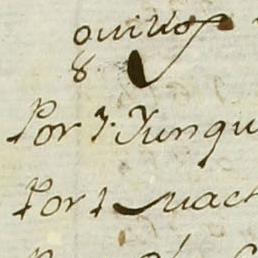 quillos
8
Por 7. Yunqu
Por 1 Mach